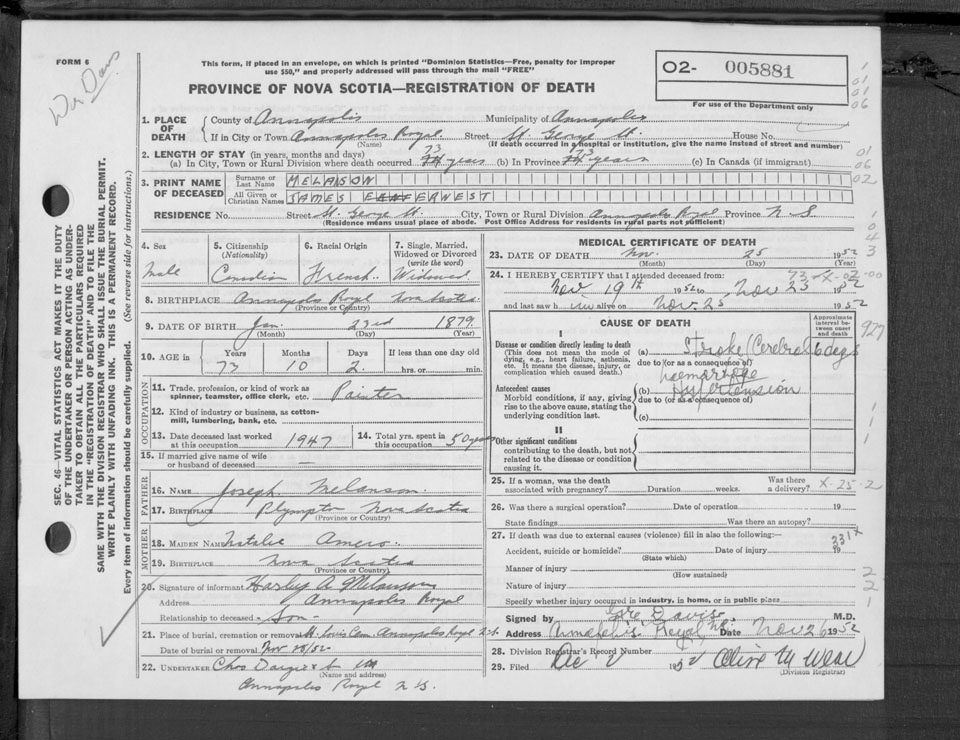 FORM 6
Wm Davis
This form, if placed in an envelope, on which is printed "Dominion Statistics—Free, penalty for improper
use $50," and properly addressed will pass through the mail "FREE"
PROVINCE OF NOVA SCOTIA—REGISTRATION OF DEATH
O2- 005881
For use of the Department only
SEC. 46—VITAL STATISTICS ACT MAKES IT THE DUTY
OF THE UNDERTAKER OR PERSON ACTING AS UNDER-
TAKER TO OBTAIN ALL THE PARTICULARS REQUIRED
IN THE "REGISTRATION OF DEATH" AND TO FILE THE
SAME WITH THE DIVISION REGISTRAR WHO SHALL ISSUE THE BURIAL PERMIT.
WRITE PLAINLY WITH UNFADING INK. THIS IS A PERMANENT RECORD.
Every item of information should be carefully supplied. (See reverse side for instructions.)
1. PLACE OF DEATH County of Annapolis Municipality of Annapolis
If in City or Town Annapolis Royal Street St. George St. House No.
(Name) (If death occurred in a hospital or institution, give the name instead of street and number)
2. LENGTH OF STAY (in years, months and days)
(a) In City, Town or Rural Division where death occurred 73 years (b) In Province 73 years (c) In Canada (if immigrant)
3. PRINT NAME OF DECEASED Surname or Last Name MELASON
All Given or Christian Names JAMES ERWEST
RESIDENCE No. Street St. George St. City, Town or Rural Division Annapolis Royal Province N S
(Residence means usual place of abode. Post Office Address for residents in rural parts not sufficient)
4. Sex Male
5. Citizenship (Nationality) Canadian
6. Racial Origin French
7. Single, Married, Widowed or Divorced (write the word) Widowed
8. BIRTHPLACE Annapolis Royal Nova Scotia
(Province or Country)
9. DATE OF BIRTH Jan. 23rd 1879
(Month) (Day) (Year)
10. AGE in Years Months Days If less than one day old
73 10 2 hrs. or min.
OCCUPATION
11. Trade, profession, or kind of work as spinner, teamster, office clerk, etc. Painter
12. Kind of industry or business, as cotton-mill, lumbering, bank, etc.
13. Date deceased last worked at this occupation 1947
14. Total yrs. spent in this occupation 50 years
15. If married give name of wife or husband of deceased —
FATHER
16. NAME Joseph Melanson
17. BIRTHPLACE Plympton Nova Scotia
(Province or Country)
MOTHER
18. MAIDEN NAME Natalie Amero
19. BIRTHPLACE Nova Scotia
(Province or Country)
20. Signature of informant Harley A Melanson
Address Annapolis Royal
Relationship to deceased Son
21. Place of burial, cremation or removal St. Louis Cem. Annapolis Royal N.S.
Date of burial or removal Nov 28/52
22. UNDERTAKER Chas Dargie &
(Name and address)
Annapolis Royal N S.
MEDICAL CERTIFICATE OF DEATH
23. DATE OF DEATH Nov. 25 1952
(Month) (Day) (Year)
24. I HEREBY CERTIFY that I attended deceased from:
Nov 19th 1952 to Nov 23 1952
and last saw h im alive on Nov. 25 1952
CAUSE OF DEATH
Approximate interval between onset and death
I
Disease or condition directly leading to death
(This does not mean the mode of dying, e.g., heart failure, asthenia, etc. It means the disease, injury, or complication which caused death.)
(a) Stroke (Cerebral 6 days
due to (or as a consequence of)
haemorrhage
Antecedent causes
Morbid conditions, if any, giving rise to the above cause, stating the underlying condition last.
(b) Hypertension
due to (or as a consequence of)
(c)
II
Other significant conditions
contributing to the death, but not related to the disease or condition causing it.
25. If a woman, was the death associated with pregnancy? Duration weeks. Was there a delivery? X-25-2
26. Was there a surgical operation? Date of operation 19
State findings Was there an autopsy?
27. If death was due to external causes (violence) fill in also the following:—
331X
Accident, suicide or homicide? Date of injury 19
(State which)
Manner of injury
(How sustained)
Nature of injury
Specify whether injury occurred in industry, in home, or in public place
Signed by Davis M.D.
Address Annapolis Royal N.S. Date Nov 26 1952
28. Division Registrar's Record Number
29. Filed Dec 1952
(Division Registrar)
927